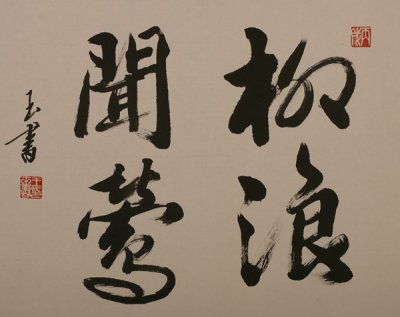 柳浪
聞鶯
玉書